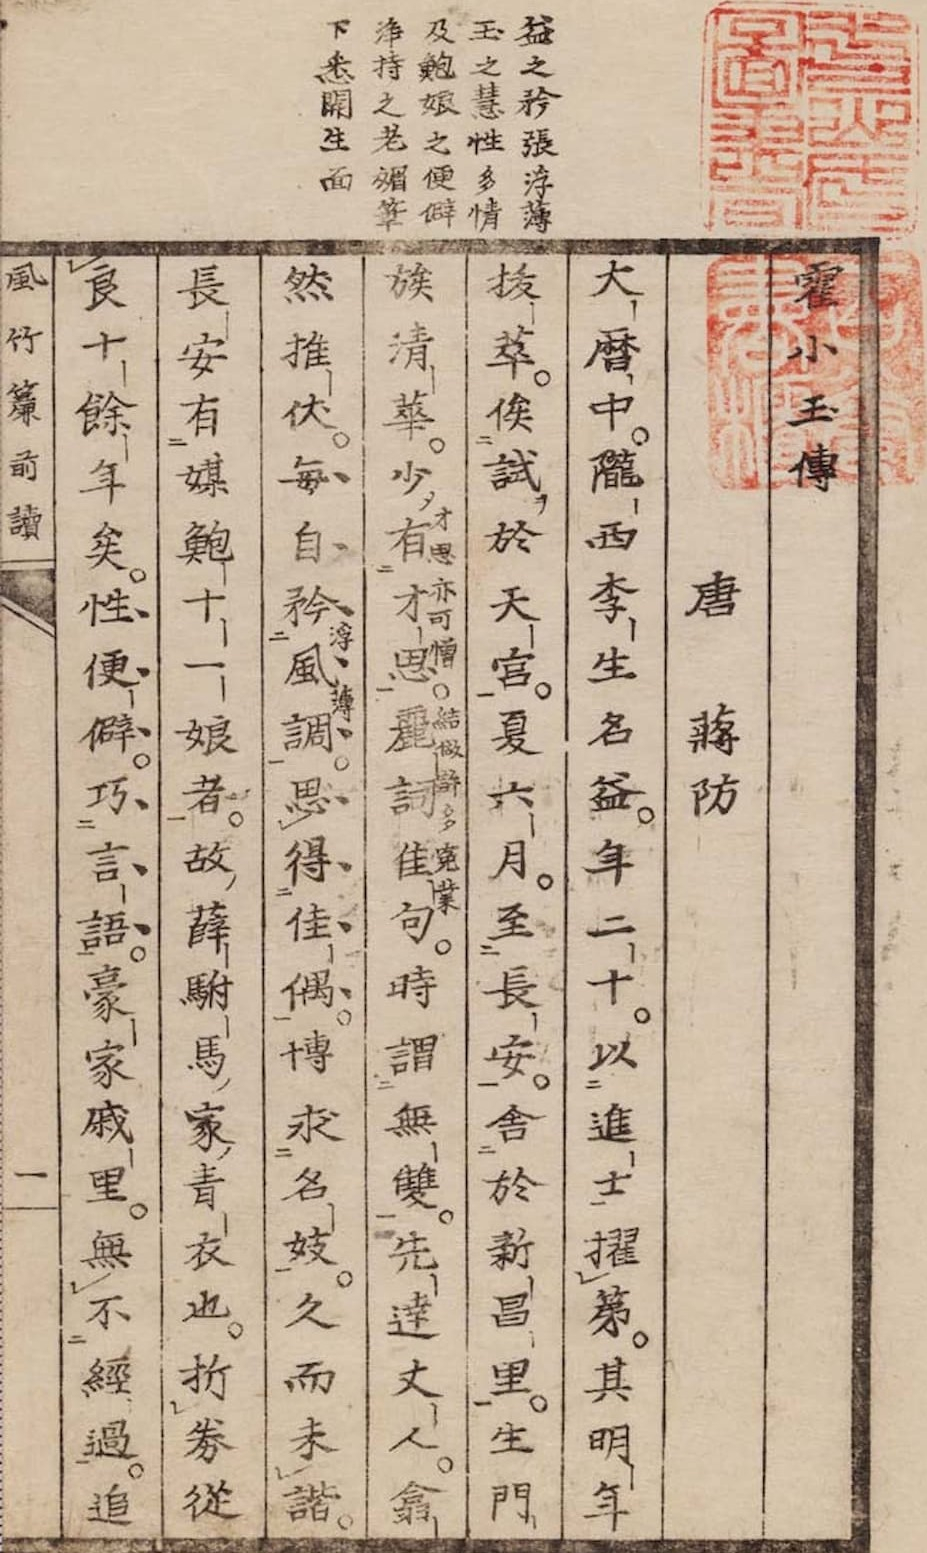 益之矜張浮薄
玉之慧性多情
及鮑娘之便僻
淨持之老媚筆
下悉開生面
霍小玉傳
唐 蔣防
大曆中。隴西李生名益。年二十。以進士擢第。其明年
拔萃。俟試於天宮。夏六月。至長安。舍於新昌里。生門
族清華。少有才思麗詞佳句。時謂無雙。先達丈人。翕
才思亦可憎。結做許多冤業
然推伏。每自矜風調。思得佳偶。博求名妓。久而未諧。
浮薄
長安有媒鮑十一娘者。故薛駙馬家青衣也。折券從
良十餘年矣。性便僻。巧言語。豪家戚里。無不經過。追
風竹簾前讀
一